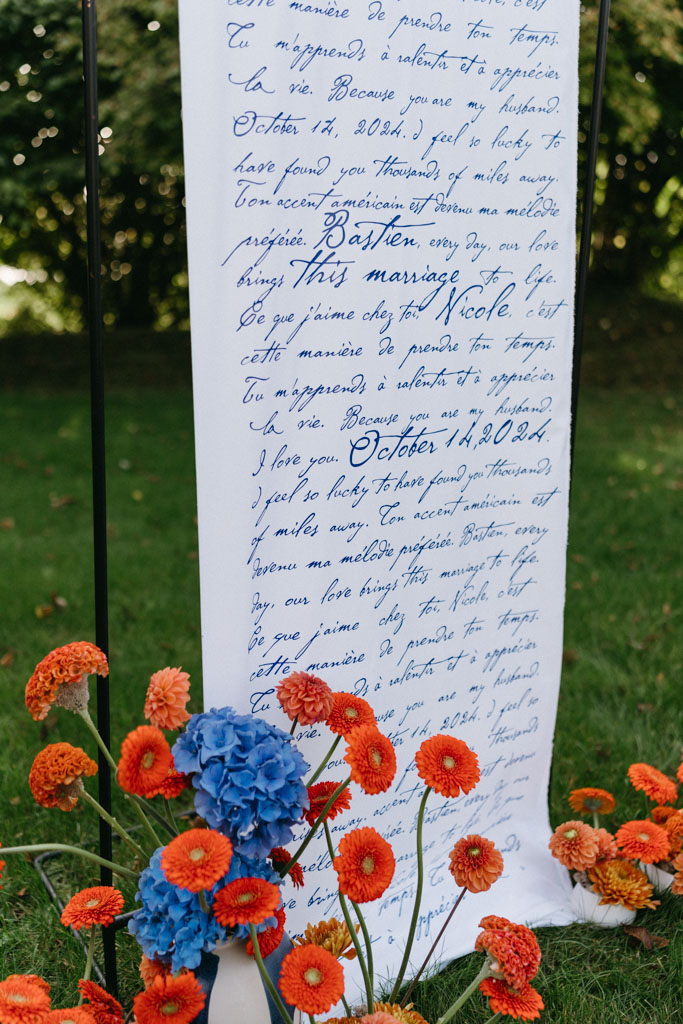 cette manière de prendre ton temps.
Tu m'apprends à ralentir et à apprécier
la vie. Because you are my husband.
October 14, 2024. I feel so lucky to
have found you thousands of miles away.
Ton accent américain est devenu ma mélodie
préférée. Bastien, every day, our love
brings this marriage to life.
Ce que j'aime chez toi, Nicole, c'est
cette manière de prendre ton temps.
Tu m'apprends à ralentir et à apprécier
la vie. Because you are my husband.
I love you. October 14, 2024.
I feel so lucky to have found you thousands
of miles away. Ton accent américain est
devenu ma mélodie préférée. Bastien, every
day, our love brings this marriage to life.
Ce que j'aime chez toi, Nicole, c'est
cette manière de prendre ton temps.
Tu m'apprends à ralentir et à apprécier
because you are my husband.
14, 2024. I feel so
thousands
away. accent
Bastien, every
brings marriage
temps.
à apprécier